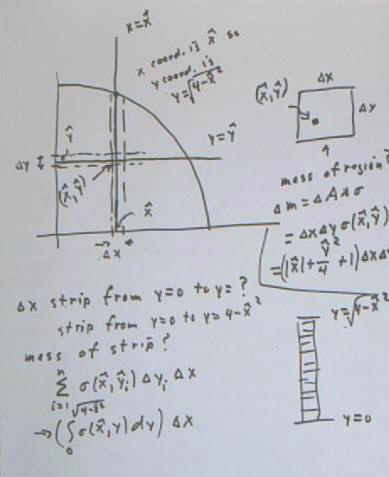 x=x̂
x coord. is x̂ so
y coord. is
y=√(4-x̂²)
y=ŷ
Δy
ŷ
(x̂,ŷ)
x̂
Δx
Δx
(x̂,ŷ)
Δy
mass of region?
Δm = ΔA × σ
= ΔxΔy σ(x̂,ŷ)
= (|x̂| + ŷ²/4 + 1) ΔxΔy
Δx strip from y=0 to y=?
strip from y=0 to y=4-x̂²
mass of strip?
∑_{i=1}^{n} σ(x̂,ŷᵢ) Δyᵢ Δx
→ (∫_0^{√(4-x̂²)} σ(x̂,y) dy) Δx
y=√(4-x̂²)
y=0